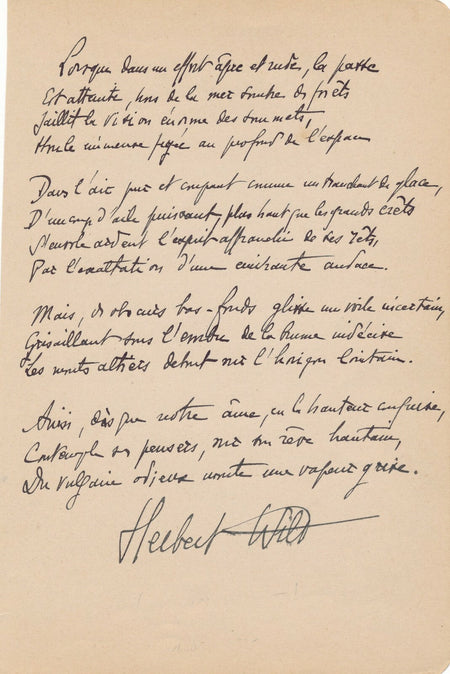 Lorsque dans un effort âpre et rude, la passe
Est atteinte, hors de la mer sombre des forêts
Jaillit la vision énorme des sommets,
Houle immense figée au profond de l'espace
Dans l'air pur et coupant comme un tranchant de glace,
D'un coup d'aile puissant, plus haut que les grands crêts
S'envole ardent l'esprit affranchi de ses rêts,
Par l'exaltation d'une enivrante audace.
Mais, des obscurs bas-fonds glisse un voile incertain,
Grisaillant sous l'embu de la brume indécise
Les monts altiers debout sur l'horizon lointain.
Ainsi, dès que notre âme, en la hauteur conquise,
Contemple ses pensers, sur son rêve hautain,
Du vulgaire odieux monte une vapeur grise.
Herbert Wild